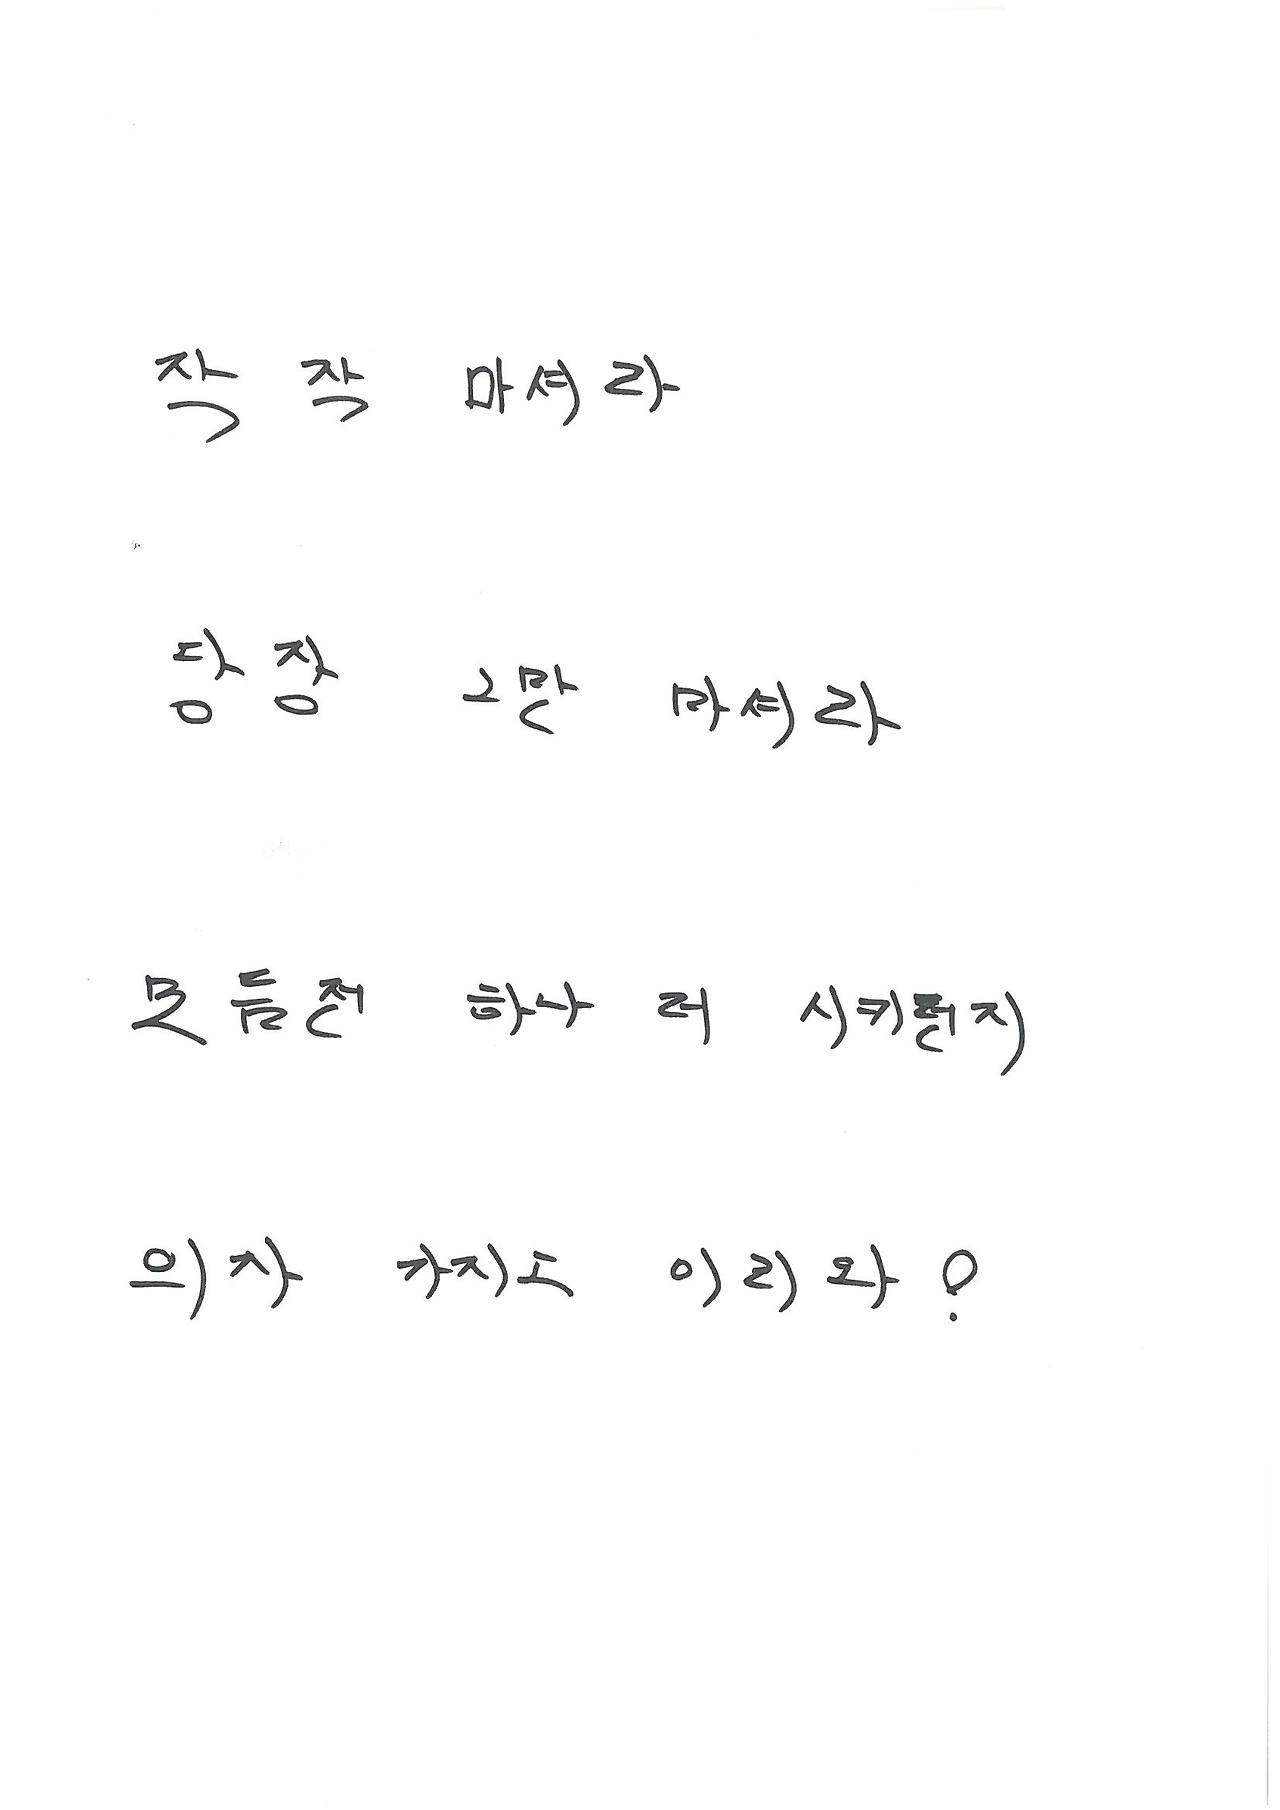 작작 마셔라
당장 그만 마셔라
모듬전 하나 더 시키던지
의자 가지고 이리와?